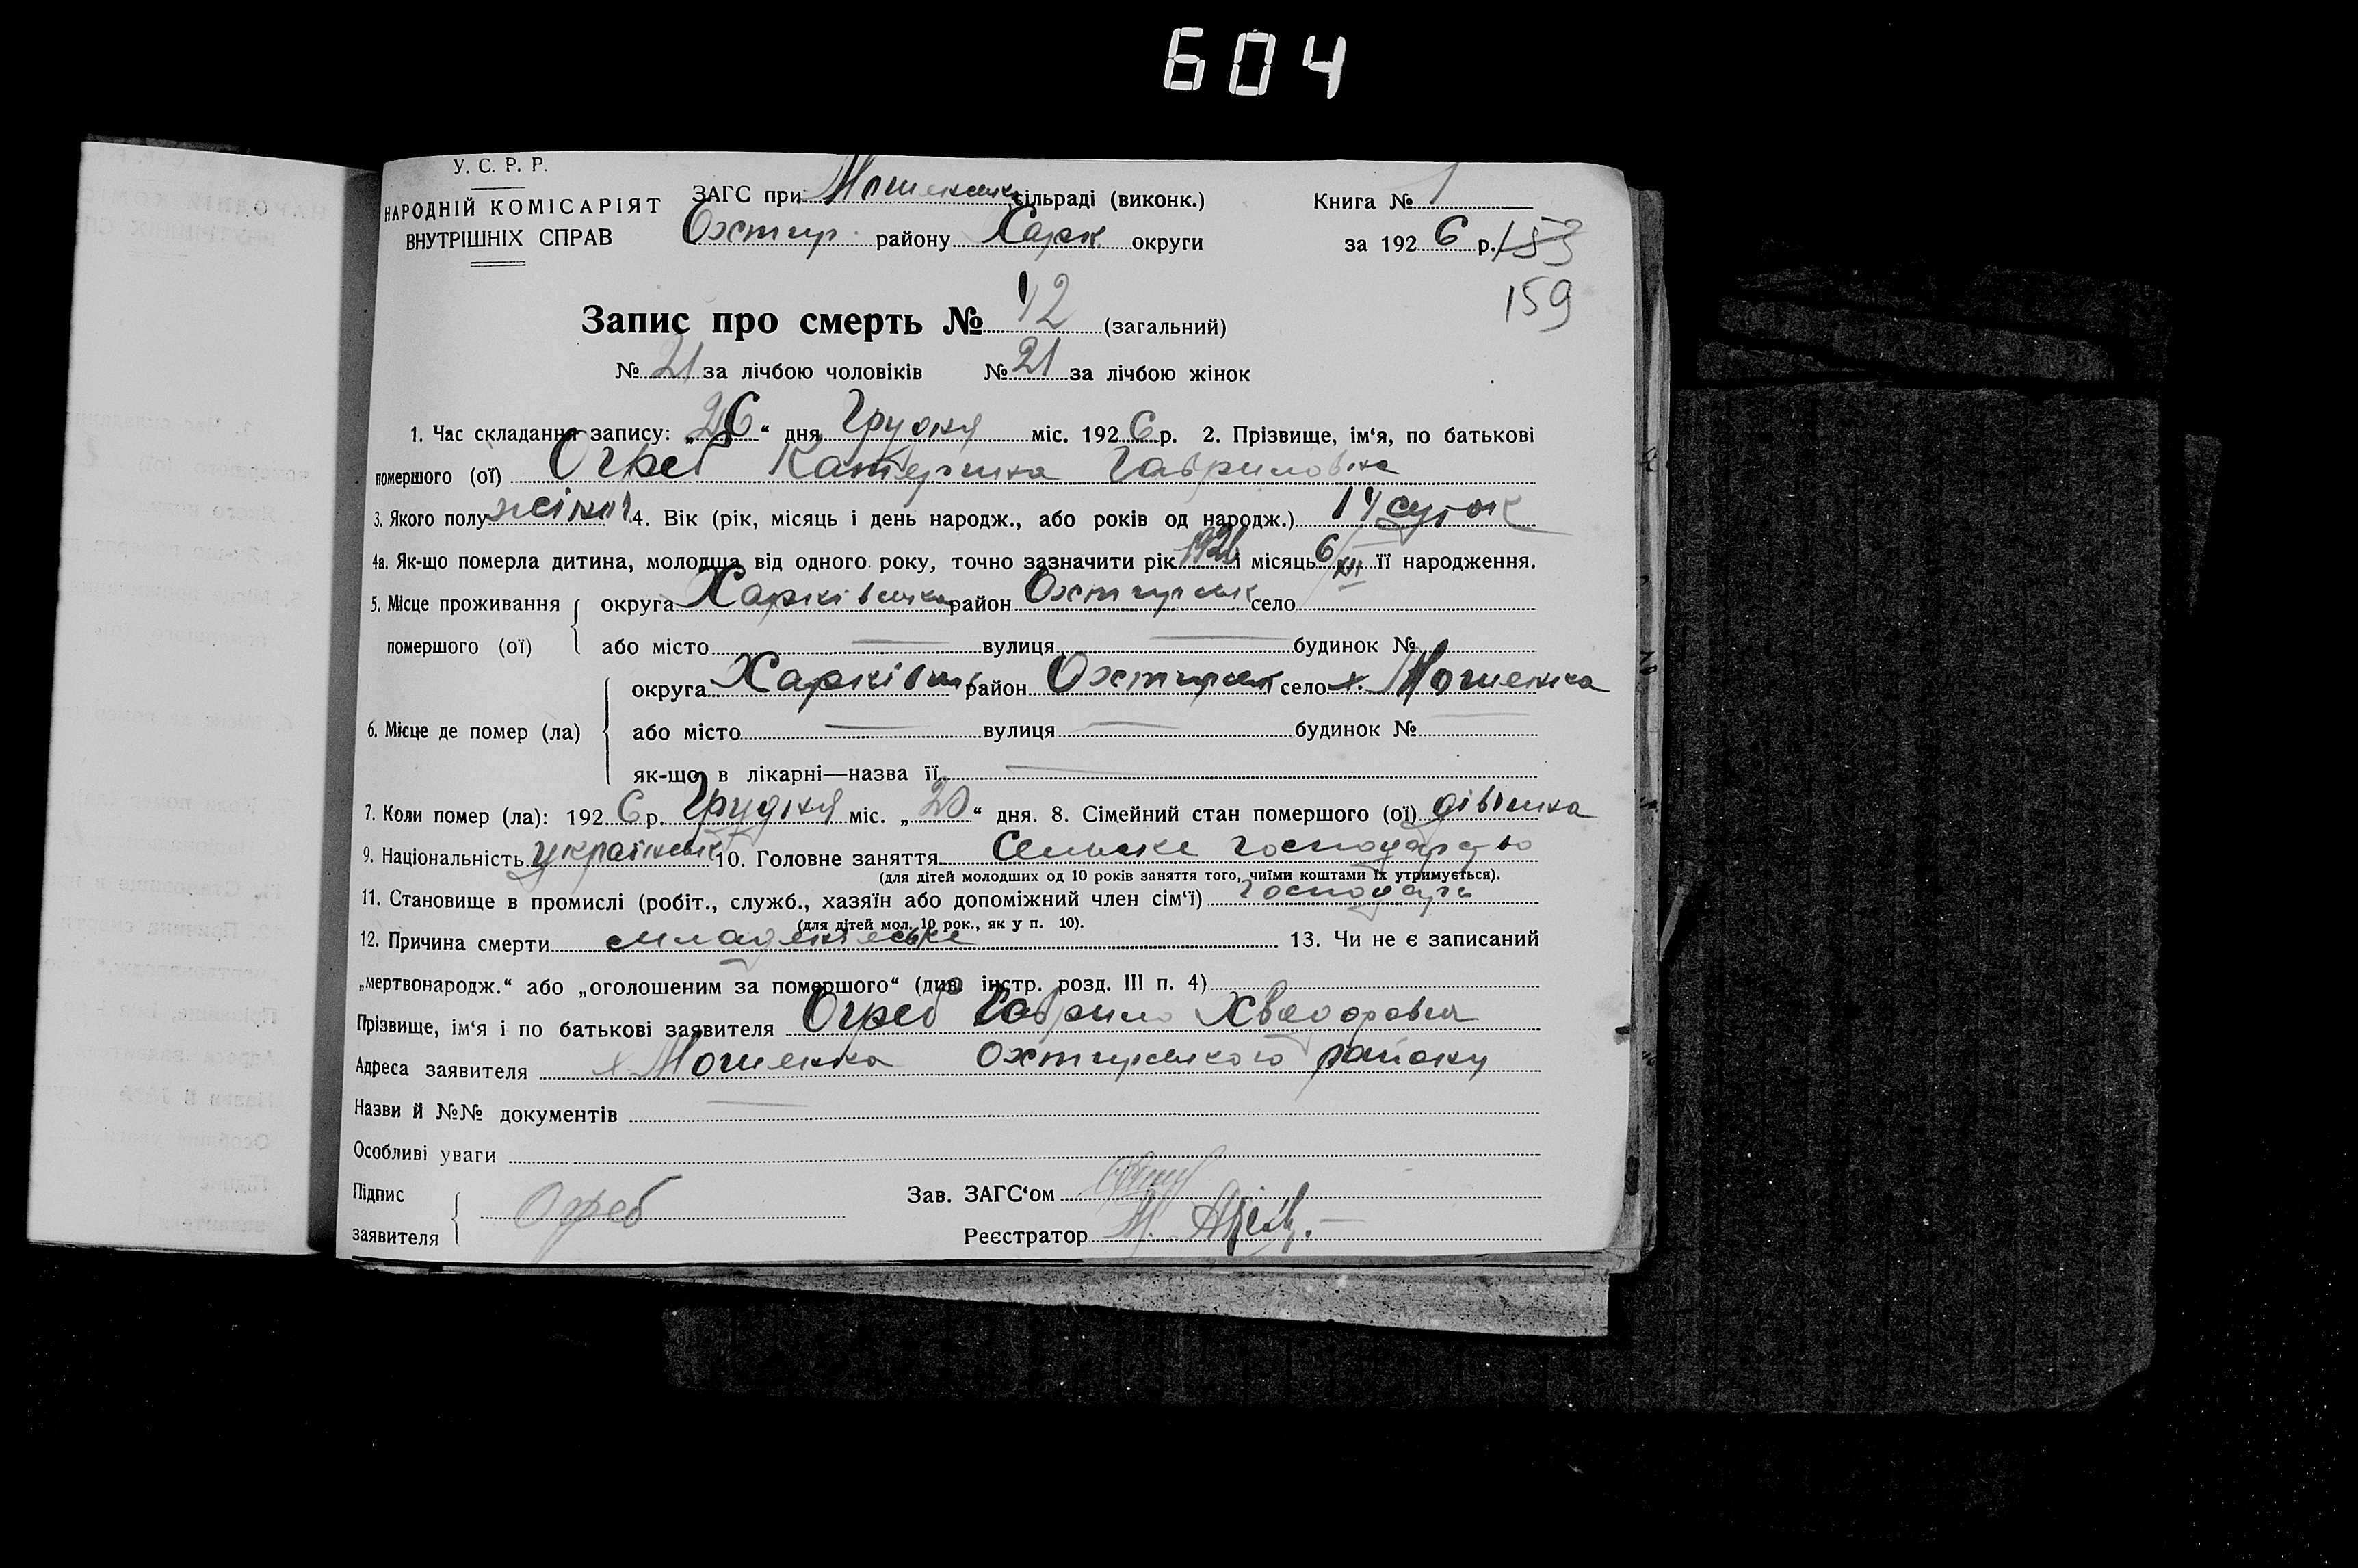 604
У. С. Р. Р.
НАРОДНІЙ КОМІСАРІЯТ
ВНУТРІШНІХ СПРАВ
ЗАГС при Мошенськ сільраді (виконк.)
Охтир. району Харк округи
Книга № 1
за 1926 р. 153
159
Запис про смерть № 42 (загальний)
№ 21 за лічбою чоловіків № 21 за лічбою жінок
1. Час складання запису: „26“ дня Грудня міс. 1926 р. 2. Прізвище, ім‘я, по батькові
помершого (ої) Огреб Катерина Гавриловна
3. Якого полу жіночі 4. Вік (рік, місяць і день народж., або років од народж.) 14 суток
4а. Як-що померла дитина, молодша від одного року, точно зазначити рік 1926 і місяць 6/XII її народження.
5. Місце проживання помершого (ої) { округа Харківська район Охтирськ село
або місто — вулиця — будинок №
6. Місце де помер (ла) { округа Харківськ район Охтирськ село х. Мошенка
або місто — вулиця — будинок № —
як-що в лікарні—назва її —
7. Коли помер (ла): 1926 р. Грудня міс. „20“ дня. 8. Сімейний стан помершого (ої) дівчина
9. Національність українськ 10. Головне заняття Сельске господарство
(для дітей молодших од 10 років заняття того, чиїми коштами їх утримується).
11. Становище в промислі (робіт., служб., хазяїн або допоміжний член сім‘ї) господарь
(для дітей мол. 10 рок., як у п. 10).
12. Причина смерти младенческе 13. Чи не є записаний
„мертвонародж.“ або „оголошеним за помершого“ (див. інстр. розд. III п. 4)
Прізвище, ім‘я і по батькові заявителя Огреб Гаврило Хведорович
Адреса заявителя х. Мошенка Охтирського району
Назви й №№ документів —
Особливі уваги
Підпис заявителя { Огреб
Зав. ЗАГС‘ом
Реєстратор